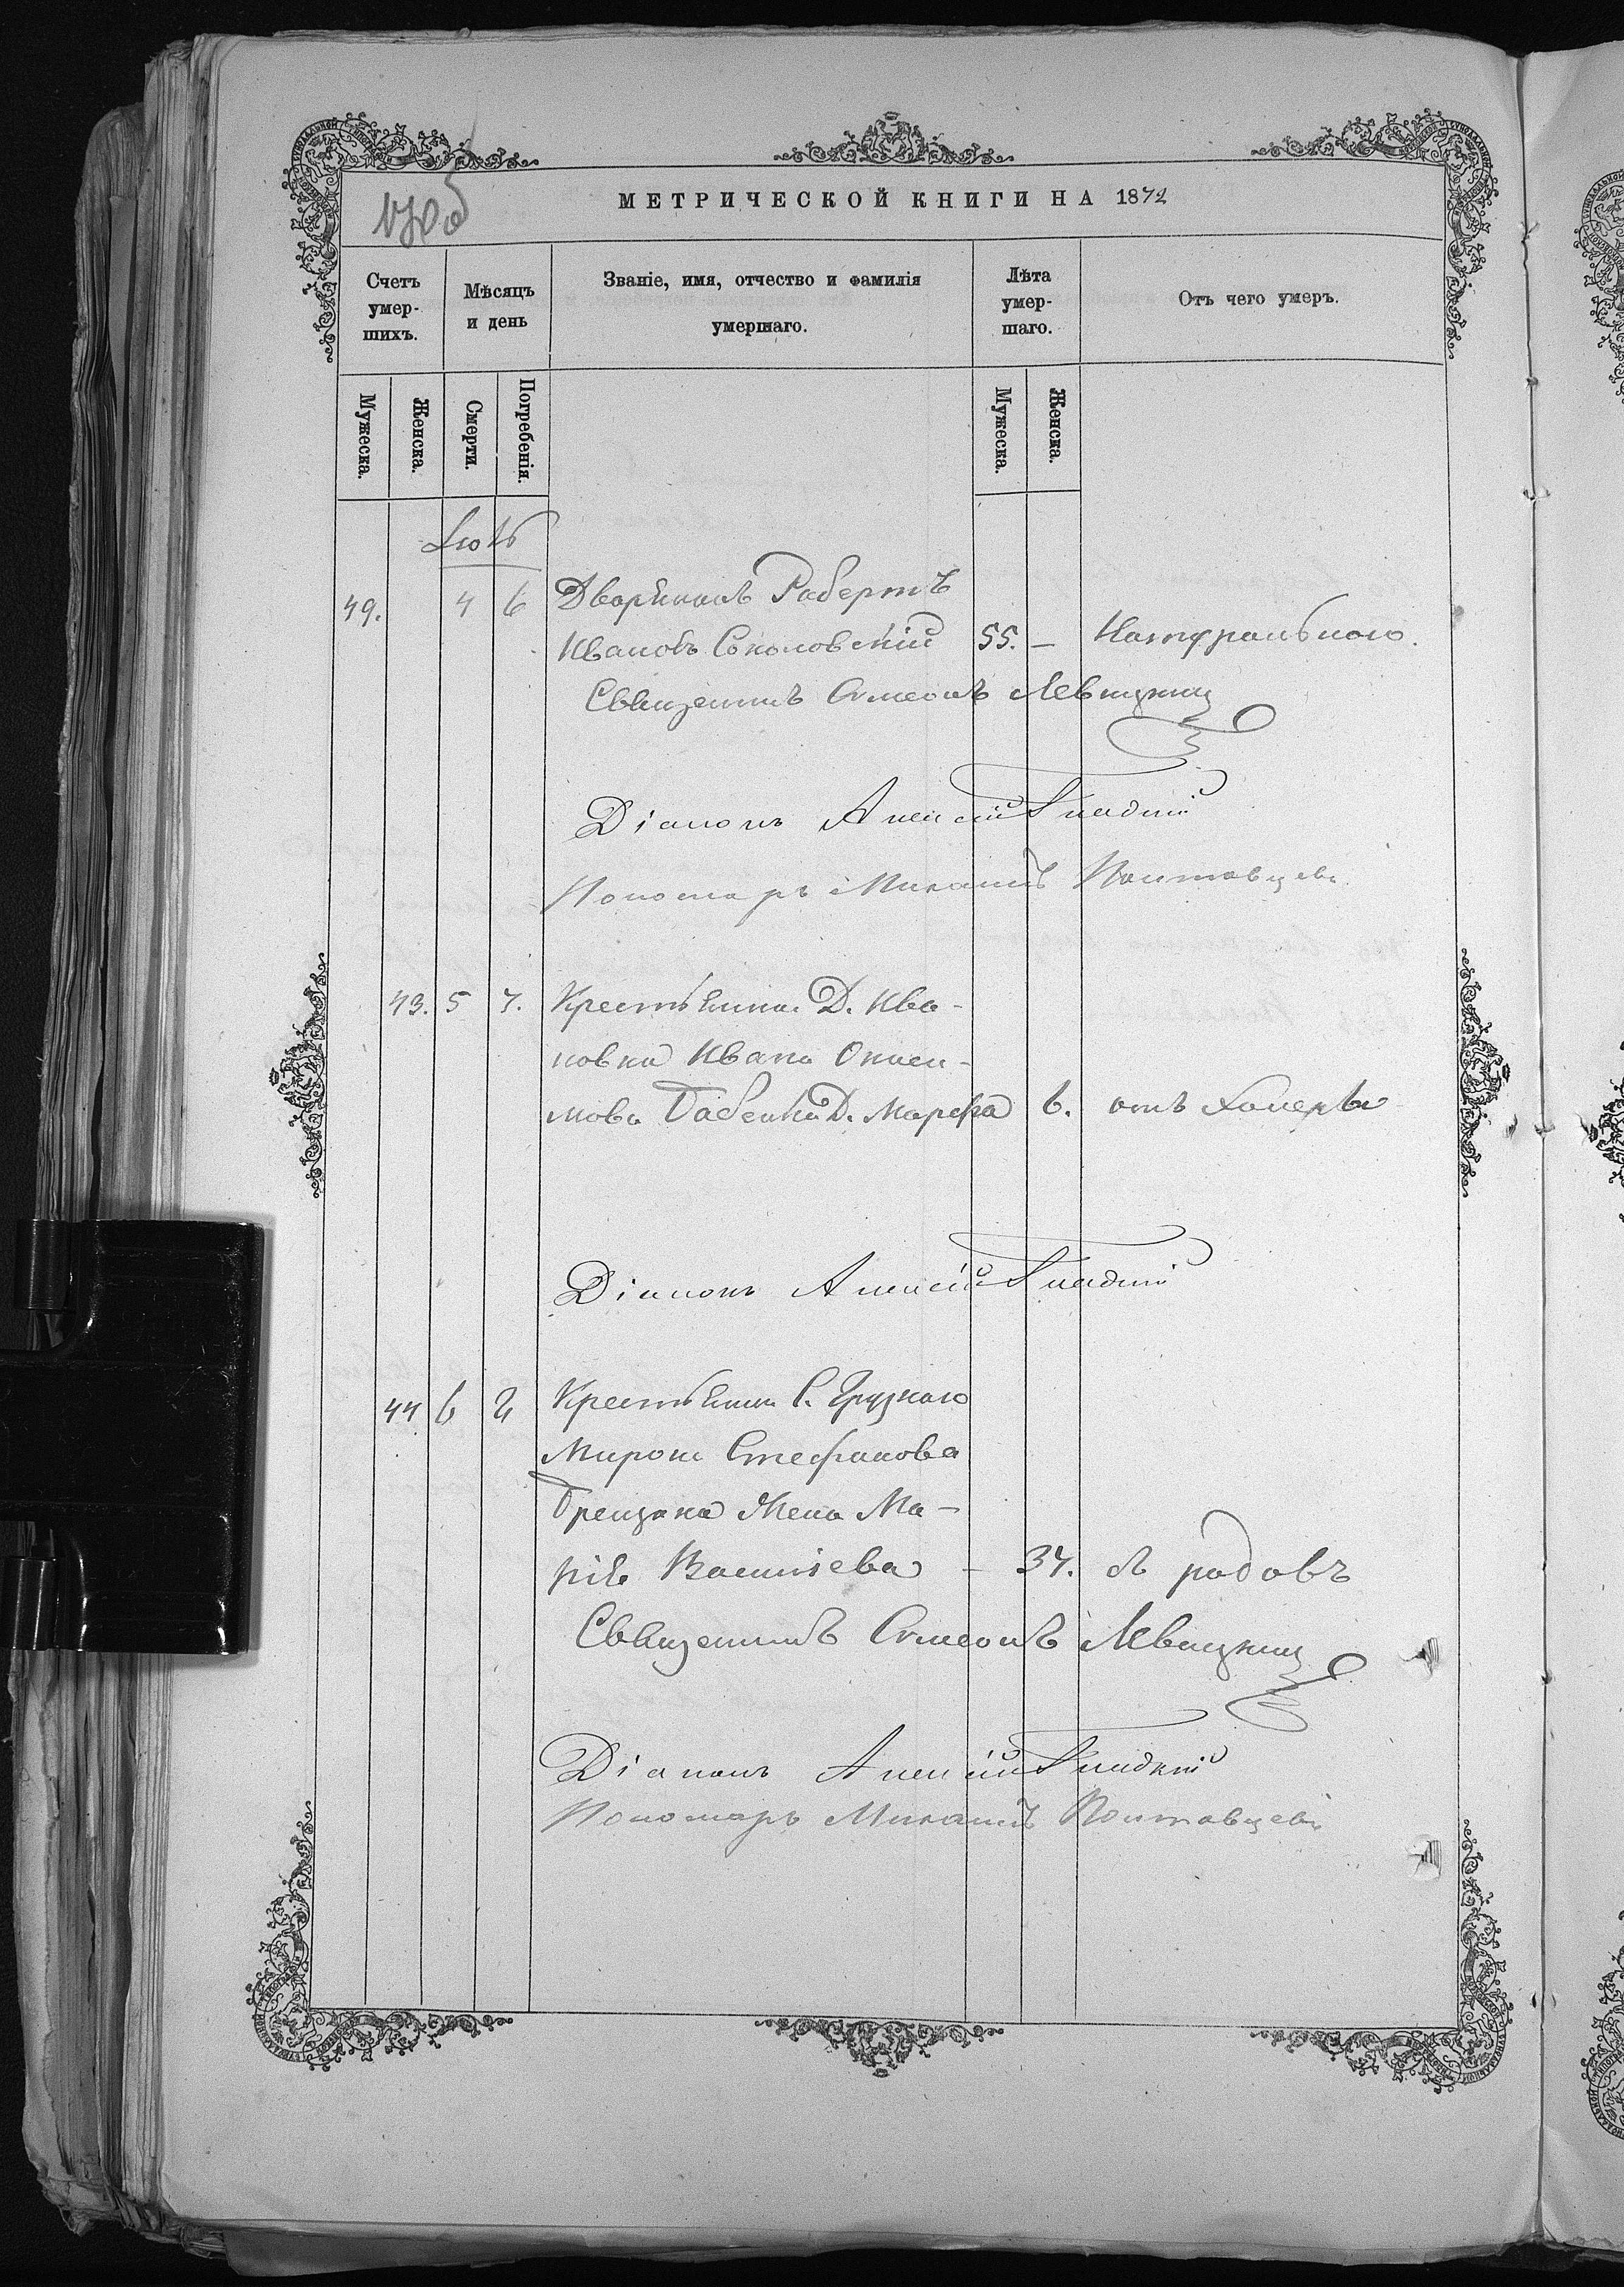 МЕТРИЧЕСКОЙ КНИГИ НА 1872
Счетъ умер-шихъ.
Мѣсяцъ и день
Званіе, имя, отчество и фамилія умершаго.
Лѣта умер-шаго.
Отъ чего умеръ.
Мужеска.
Женска.
Смерти.
Погребенія.
Мужеска.
Женска.
49. 4 6 Дворянинъ Робертъ
Ивановъ Соколовскій 55. — Натуральною.
Священникъ Симеонъ Левицкій
Діаконъ Алексій Гладкій
Пономарь Михаилъ Полтавцевъ
43. 5 7. Крестьянина Д. Ива-
новки Ивана
Бабенка Д. Марфа 6. отъ холеры
Діаконъ Алексій Гладкій
44 6 Крестьянина С. Грузкаго
Мирона Стефанова
жена Ма-
рія Василіева — 37. родовъ
Священникъ Симеонъ Левицкій
Діаконъ Алексій Гладкій
Пономарь Михаилъ Полтавцевъ